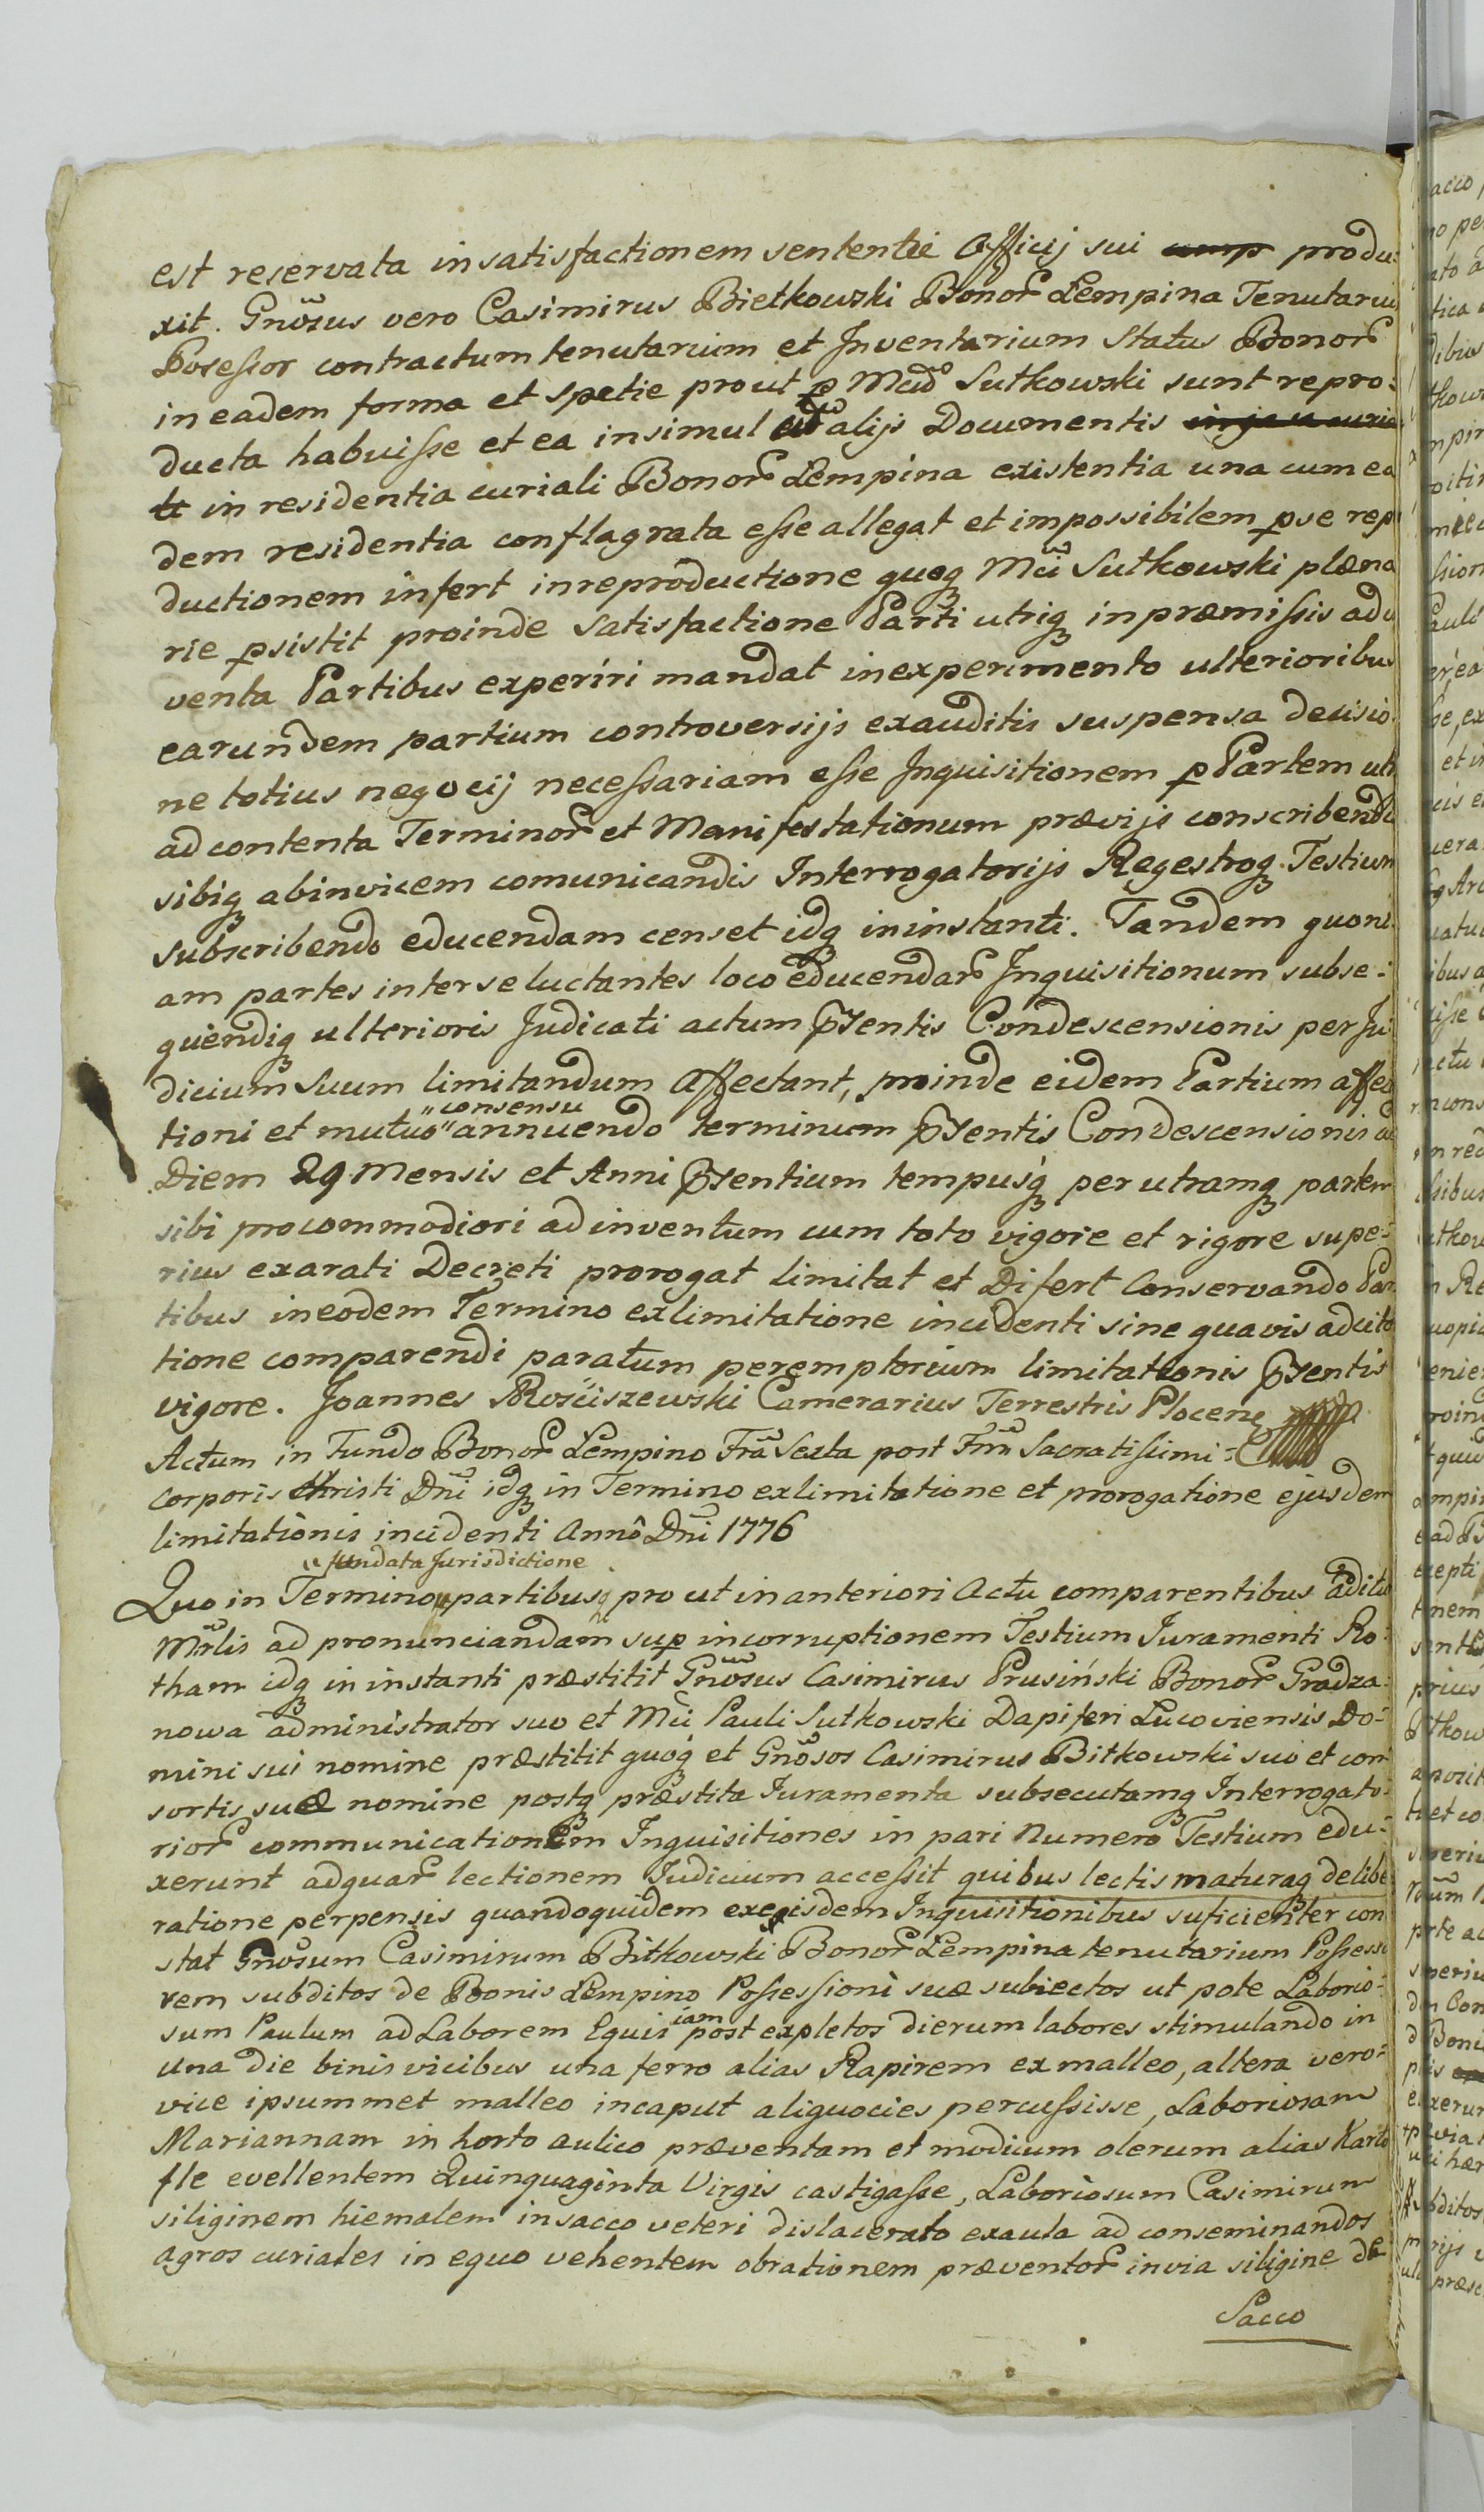 est reservata in satisfactionem sententiæ Officij sui produ-
xit. Gnosus vero Casimirus Bietkowski Bonor Lempina Tenutariu
Posessor contractum tenutarium et Inventarium Status Bonor
in eadem forma et spetie prout p Mcūm Sutkowski sunt repro:
ducta habuisse et ea insimul cū alijs Documentis
in residentia curiali Bonor Lempina existentia una cum ea
dem residentia conflagrata esse allegat et impossibilem p se rep
ductionem infert in reproductione quoq Mci Sutkowski plæna
rie psistit proinde Satisfactione Parti utriq in præmissis adu
venta Partibus experiri mandat in experimento ulterioribus
earundem partium controversijs exauditis suspensa decisio
ne totius negocij necessariam esse Inquisitionem p Partem utr
ad contenta Terminor et Manifestationum prævijs conscribendi
sibiq ab invicem comunicandis Interrogatorijs Regestroq Testium
subscribendo educendam censet idq in instanti. Tandem quoni
am partes inter se luctantes loco educendar Inquisitionum subse:
quendiq ulterioris Judicati actum pñsentis Condescensionis per Ju
dicium Suum limitandum Affectant, proinde eidem Partium affec
tioni et mutuo "consensu" annuendo terminum pñsentis Condescensionis ad
Diem 29 Mensis et Anni pñsentium tempusq per utramq partem
sibi pro commodiori adinventum cum toto vigore et rigore supe:
rius exarati Decreti prorogat limitat et Difert Conservando Par
tibus in eodem Termino ex limitatione incidenti sine quavis adcita
tione comparendi paratum peremptorium limitationis pñsentis
vigore. Joannes Rościszewski Camerarius Terrestris Plocens
Actum in Fundo Bonor Lempino Fria Sexta post Fm̄ Sacratissimi
Corporis Christi Dni idq in Termino ex limitatione et prorogatione ejusdem
limitationis incidenti Anno Dni 1776
"fundata Jurisdictione
Quo in Termino partibus prout in anteriori Actu comparentibus additis
Mr̄lis ad pronunciandam sup incorruptionem Testium Juramenti Ro:
tham idq in instanti præstitit Gnosus Casimirus Prusiński Bonor Gradza:
nowa administrator suo et Mci Pauli Sutkowski Dapiferi Lucoviensis Do:
mini sui nomine præstitit quoq et Gnosos Casimirus Bitkowski suo et con
sortis suæ nomine postq præstita Juramenta subsecutamq Interrogato:
rior communicationem Inquisitiones in pari Numero Testium edu:
xerunt ad quar lectionem Judicium accessit quibus lectis maturaq delibe
ratione perpensis quandoquidem ex eisdem Inquisitionibus suficienter con
stat Gnosum Casimirum Bitkowski Bonor Lempina tenutarium Possesso
rem subditos de Bonis Lempino Possessioni suæ subiectos ut pote Laborio:
sum Paulum ad Laborem Equis iam post expletos dierum labores stimulando in
una die binis vicibus una ferro alias Rapirem ex malleo, altera vero:
vice ipsummet malleo in caput aliquocies percussisse, Laboriosam
Mariannam in horto aulico præventam et modicum olerum alias Karto
fle evellentem Quinquaginta Virgis castigasse, Laboriosum Casimirum
siliginem hiemalem in sacco veteri dislacerato ex aula ad conseminandos
agros curiales in equo vehentem ob rationem præventor in via siligine de
Sacco